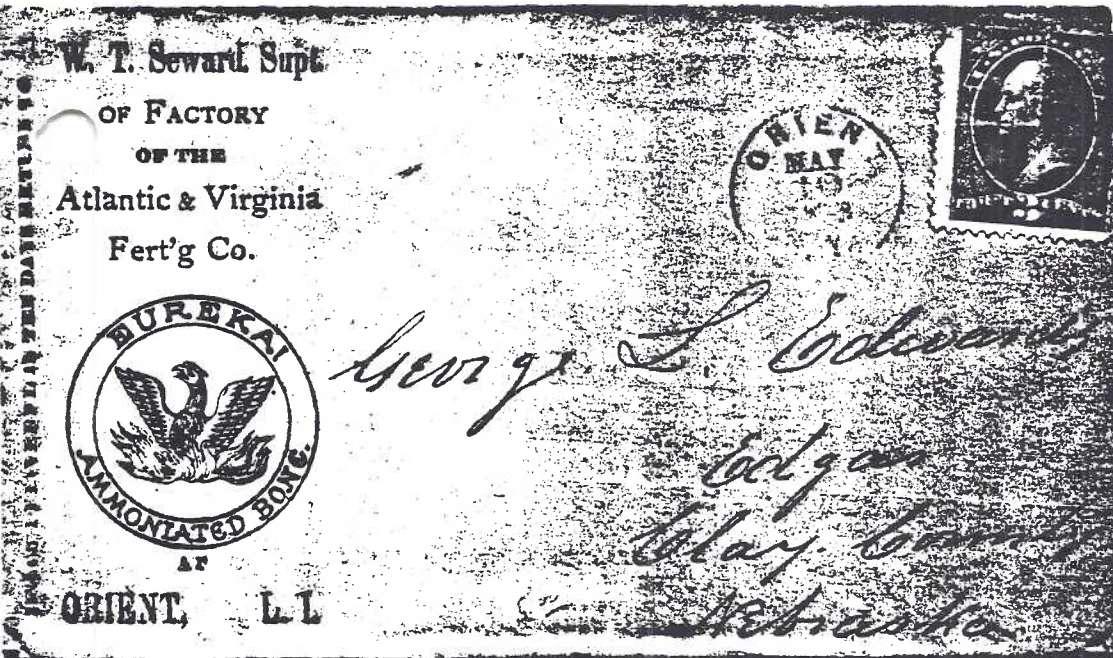 W. T. Seward. Supt.
OF FACTORY
OF THE
Atlantic & Virginia
Fert'g Co.
EUREKA!
AMMONIATED BONE.
AT
ORIENT, L. I.
ORIENT
MAY
George L. Edwards
Edgar
Clay. County
Nebraska